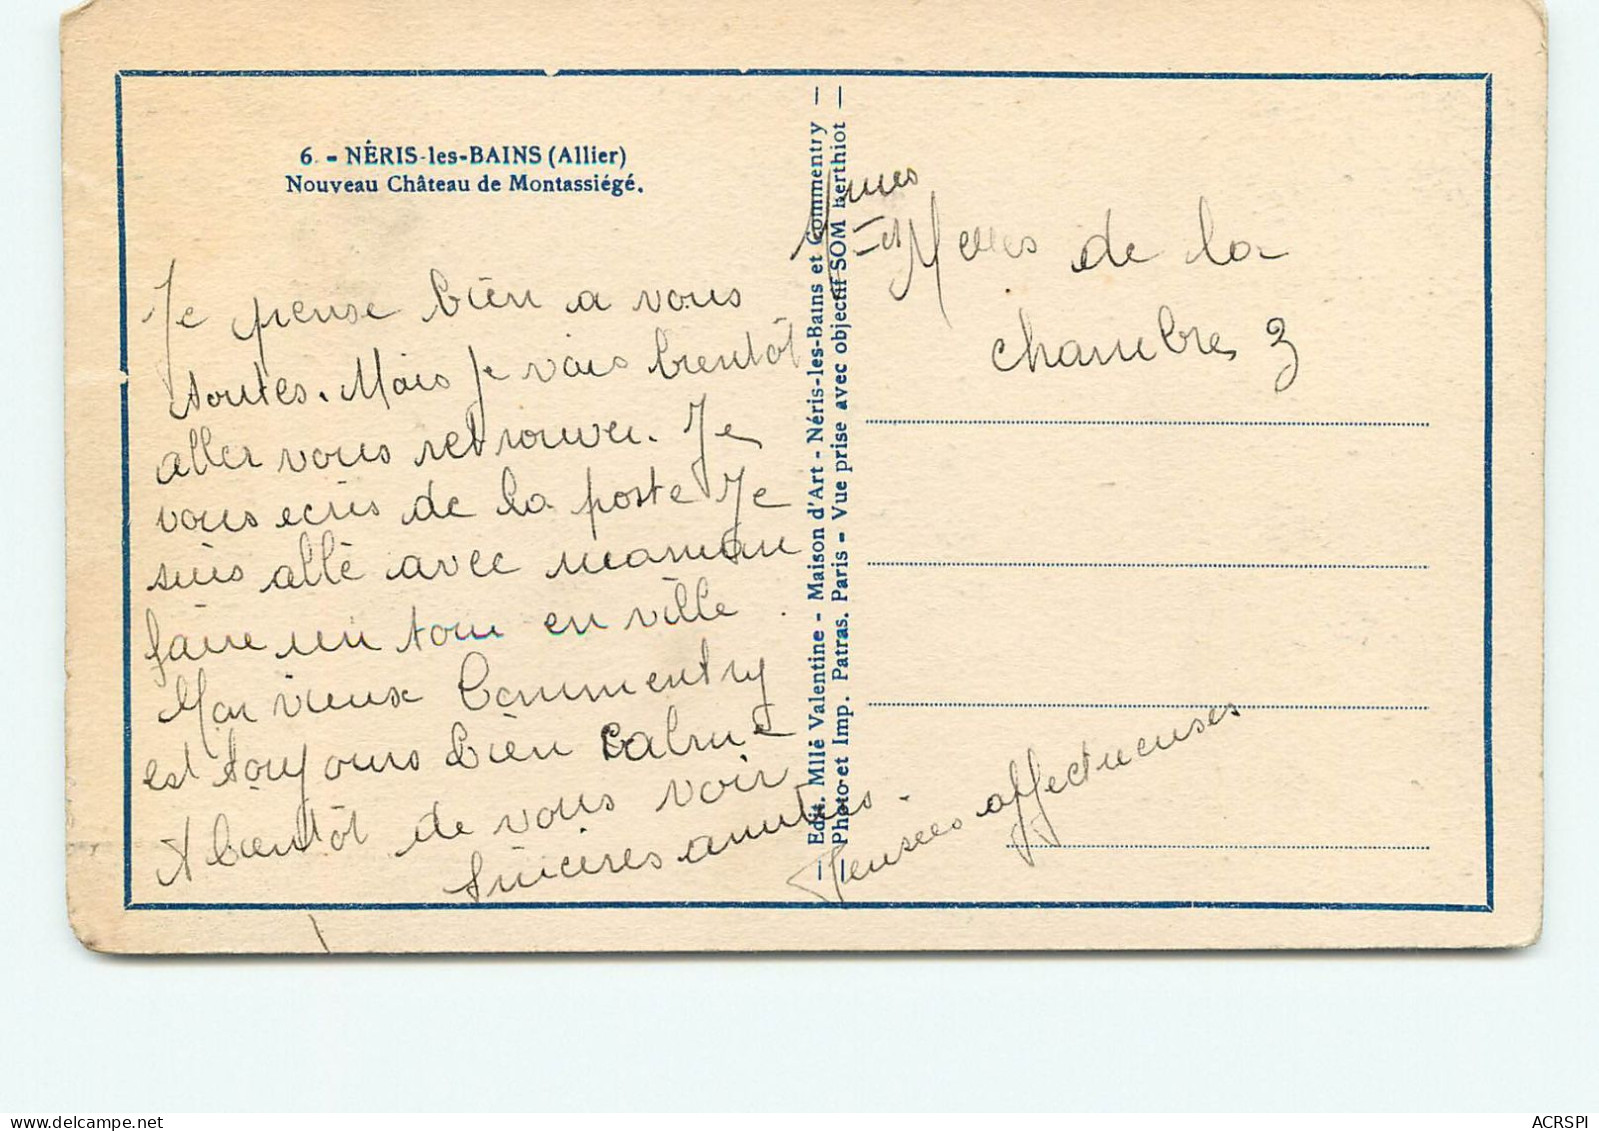 6. - NÉRIS-les-BAINS (Allier)
Nouveau Château de Montassiégé.
Je pense bien a vous
toutes. Mais je vais bientôt
aller vous retrouver. Je
vous ecris de la poste Je
suis allé avec maman
faire un tour en ville.
Mon vieux Commentry
est toujours bien calme
A bientôt de vous voir
Sincères amitiés.
Pensées affectueuses
— Edit. Mllé Valentine - Maison d'Art - Néris-les-Bains et Commentry —
— Photo et Imp. Patras. Paris - Vue prise avec objectif SOM Berthiot —
Mmes
et Melles de la
chambre 3
ACRSPI